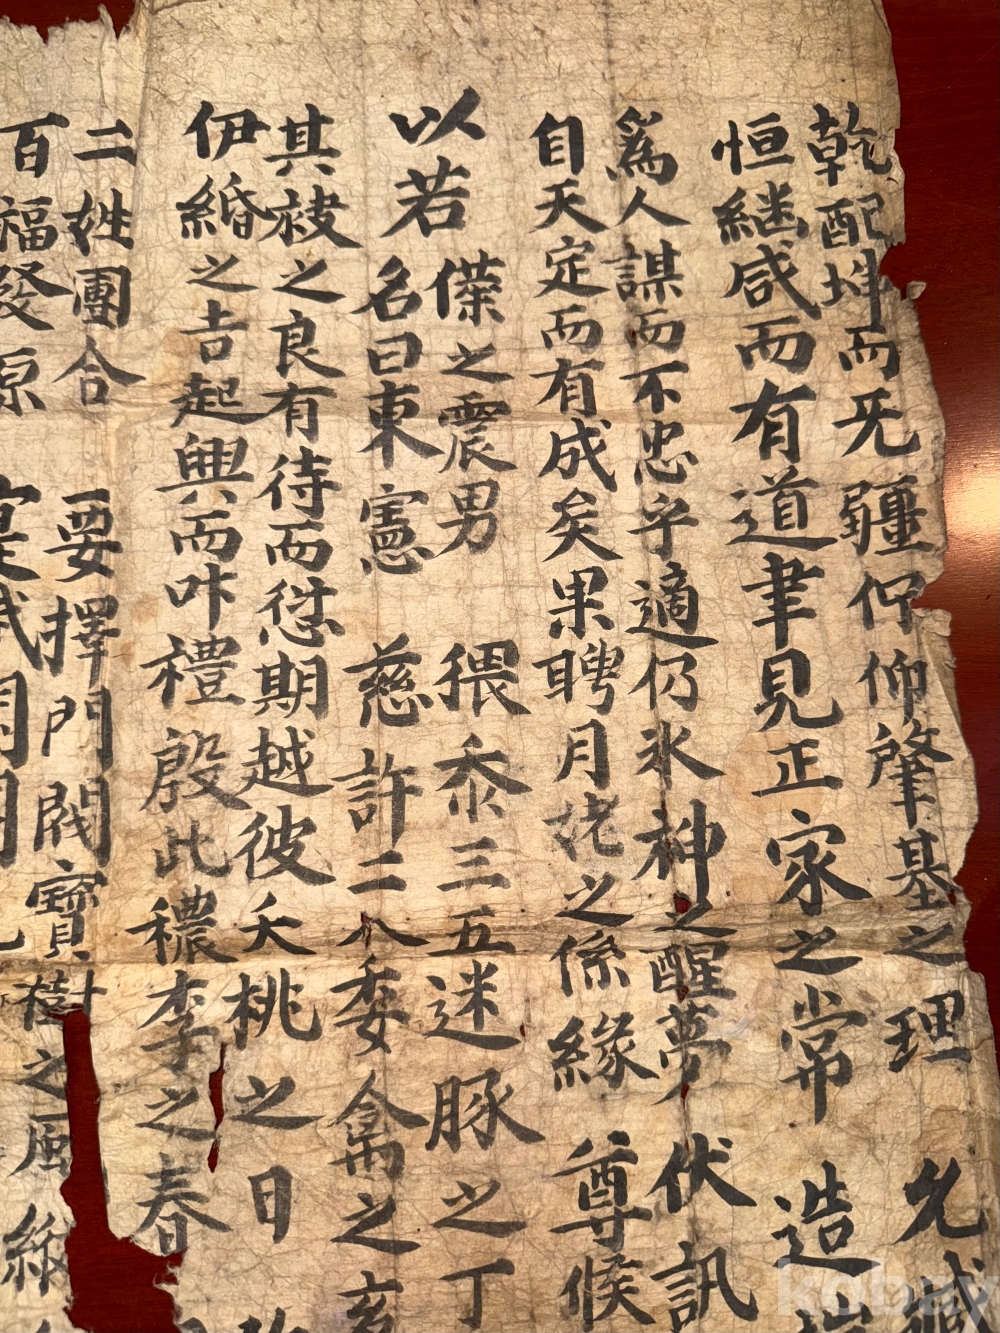 乾配坤而旡疆佇仰肇基之理 允
恒繼咸而有道聿見正家之常 造
爲人謀而不忠乎適仍氷神之醒夢 伏訊
自天定而有成矣果聘月姥之係緣 尊候
以若
僕之震男 猥忝三五迷豚之丁
名曰東憲 慈許二八委禽之
其被之良有待而愆期越彼夭桃之日
伊緡之吉起興而咏禮殷此穠李之春
二姓團合 要擇門閥寶樹之風
百福發源
kobay